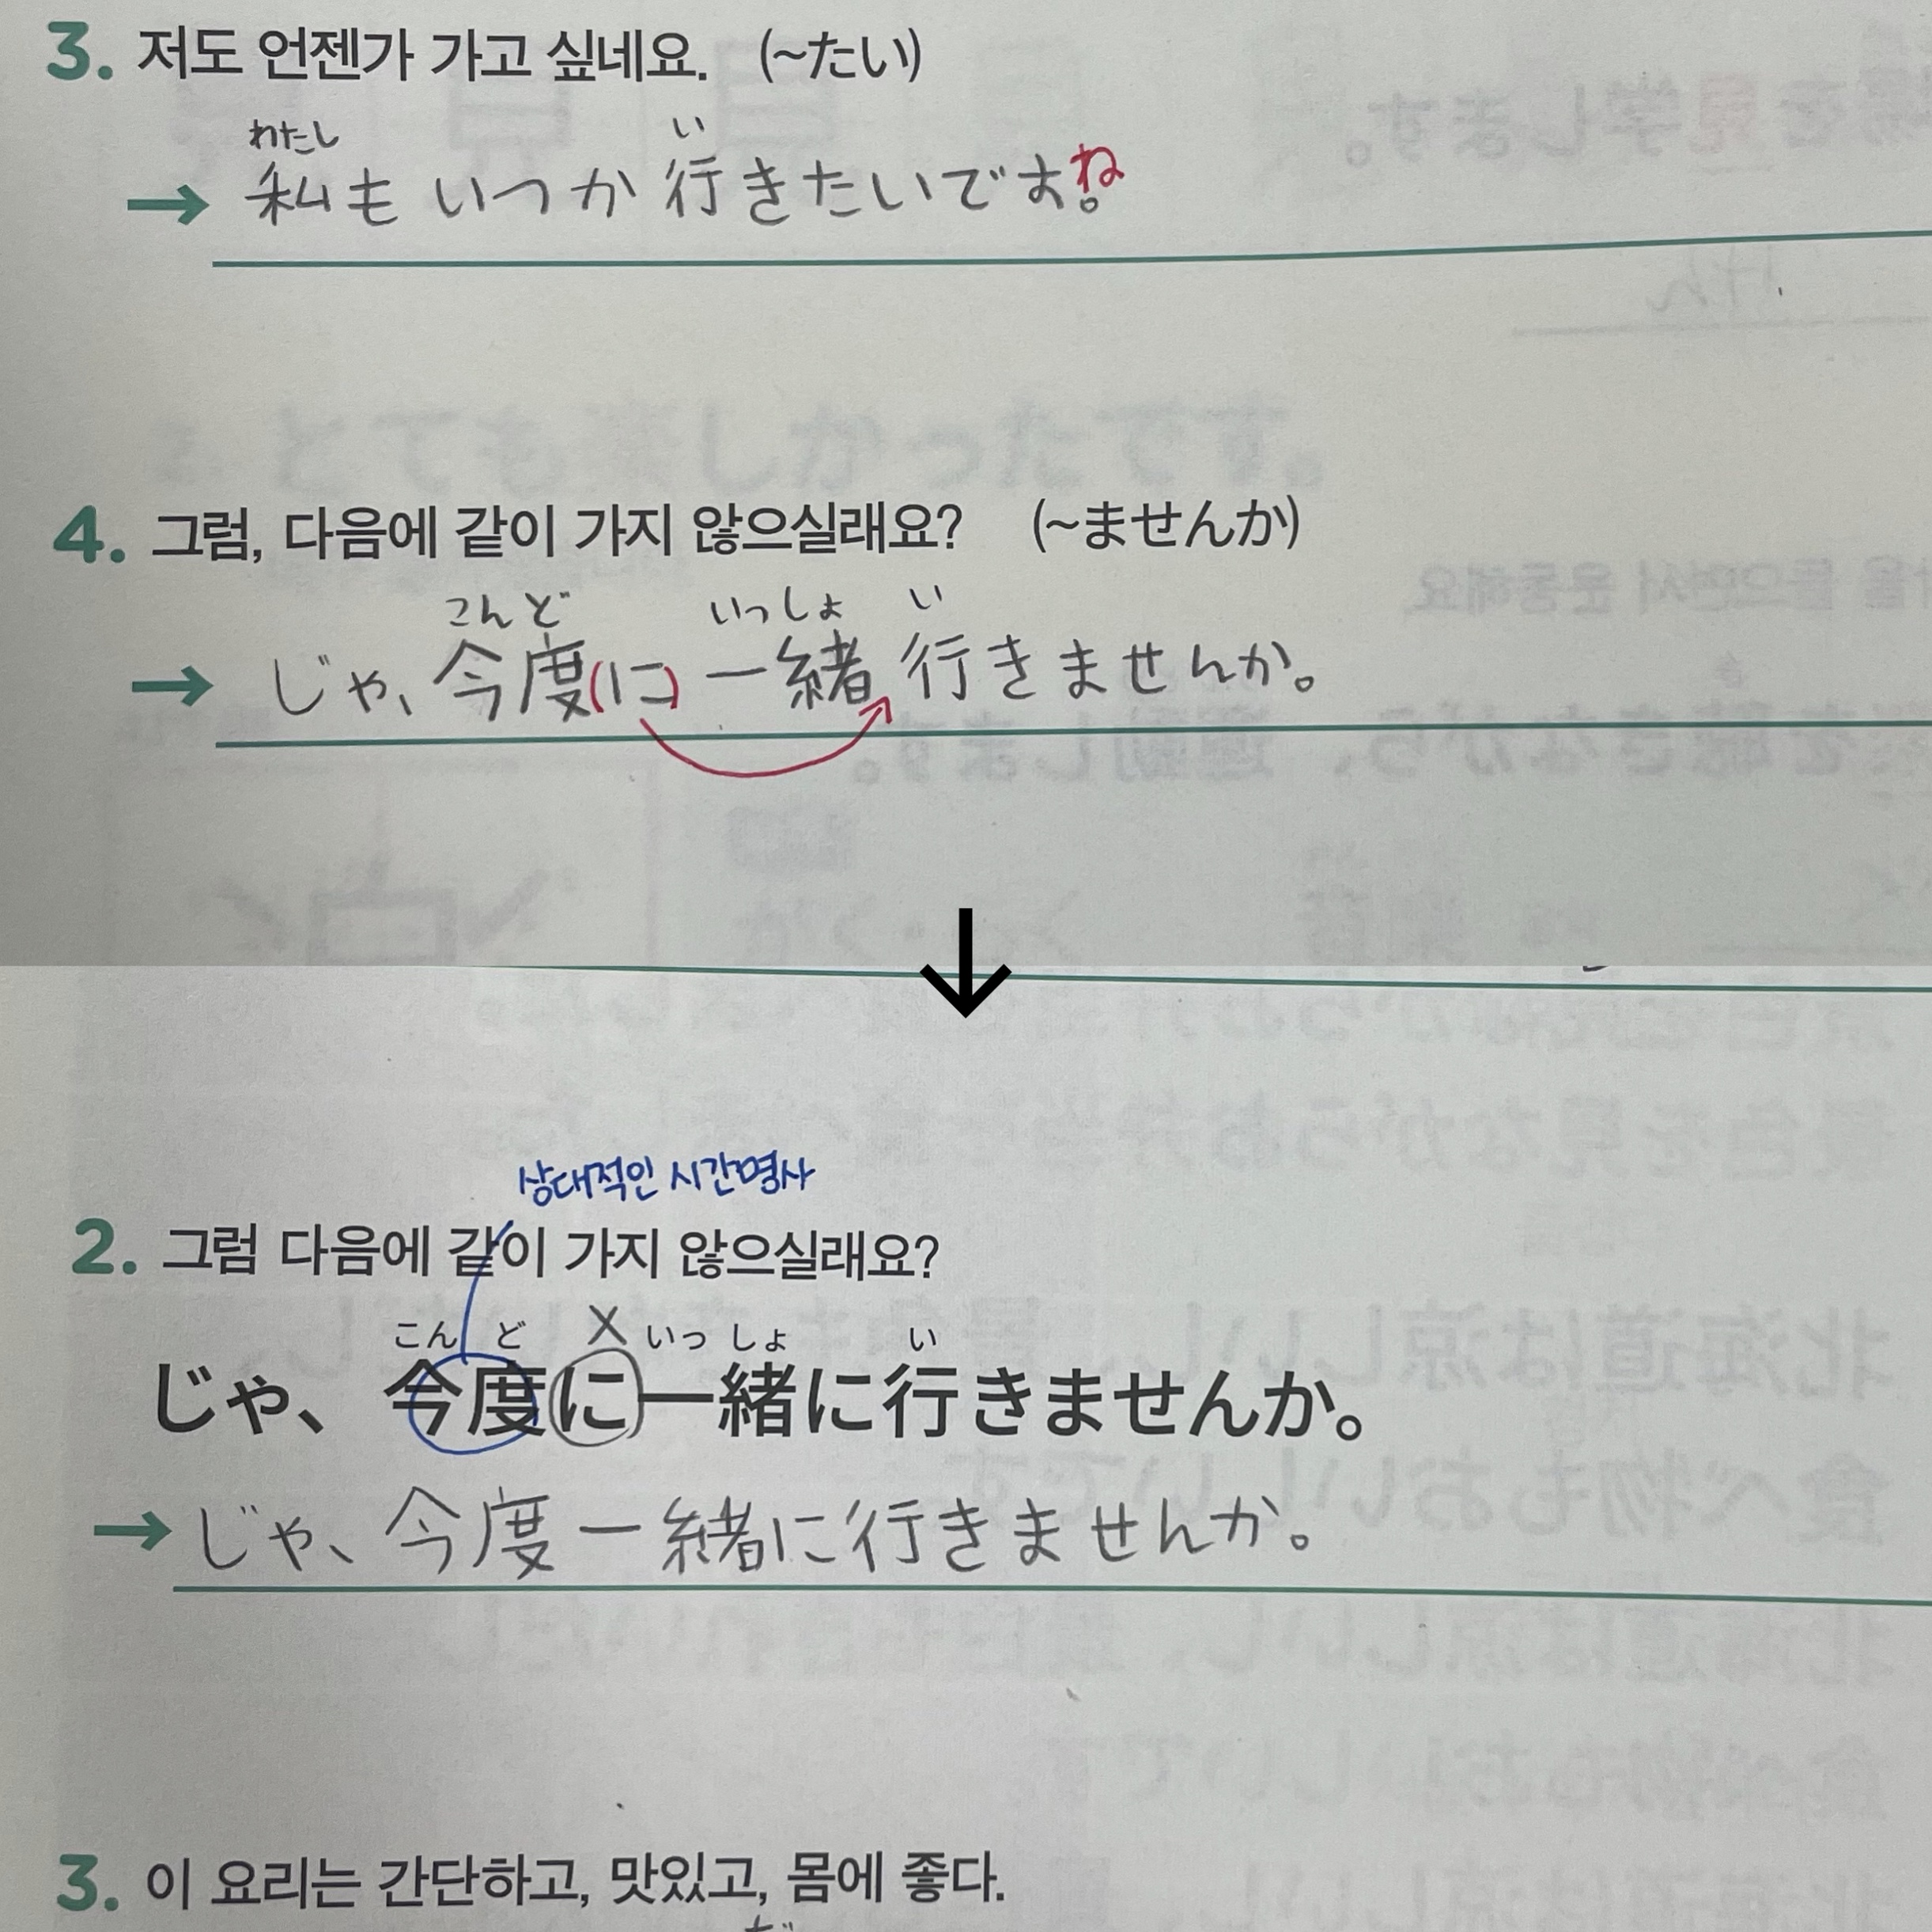 3. 저도 언젠가 가고 싶네요. (~たい)
わたし い
→ 私もいつか行きたいですね。
4. 그럼, 다음에 같이 가지 않으실래요? (~ませんか)
こんど いっしょ い
→ じゃ、今度(に)一緒行きませんか。
↓
상대적인 시간명사
2. 그럼 다음에 같이 가지 않으실래요?
こん ど X いっ しょ い
じゃ、今度に一緒に行きませんか。
→ じゃ、今度一緒に行きませんか。
3. 이 요리는 간단하고, 맛있고, 몸에 좋다.